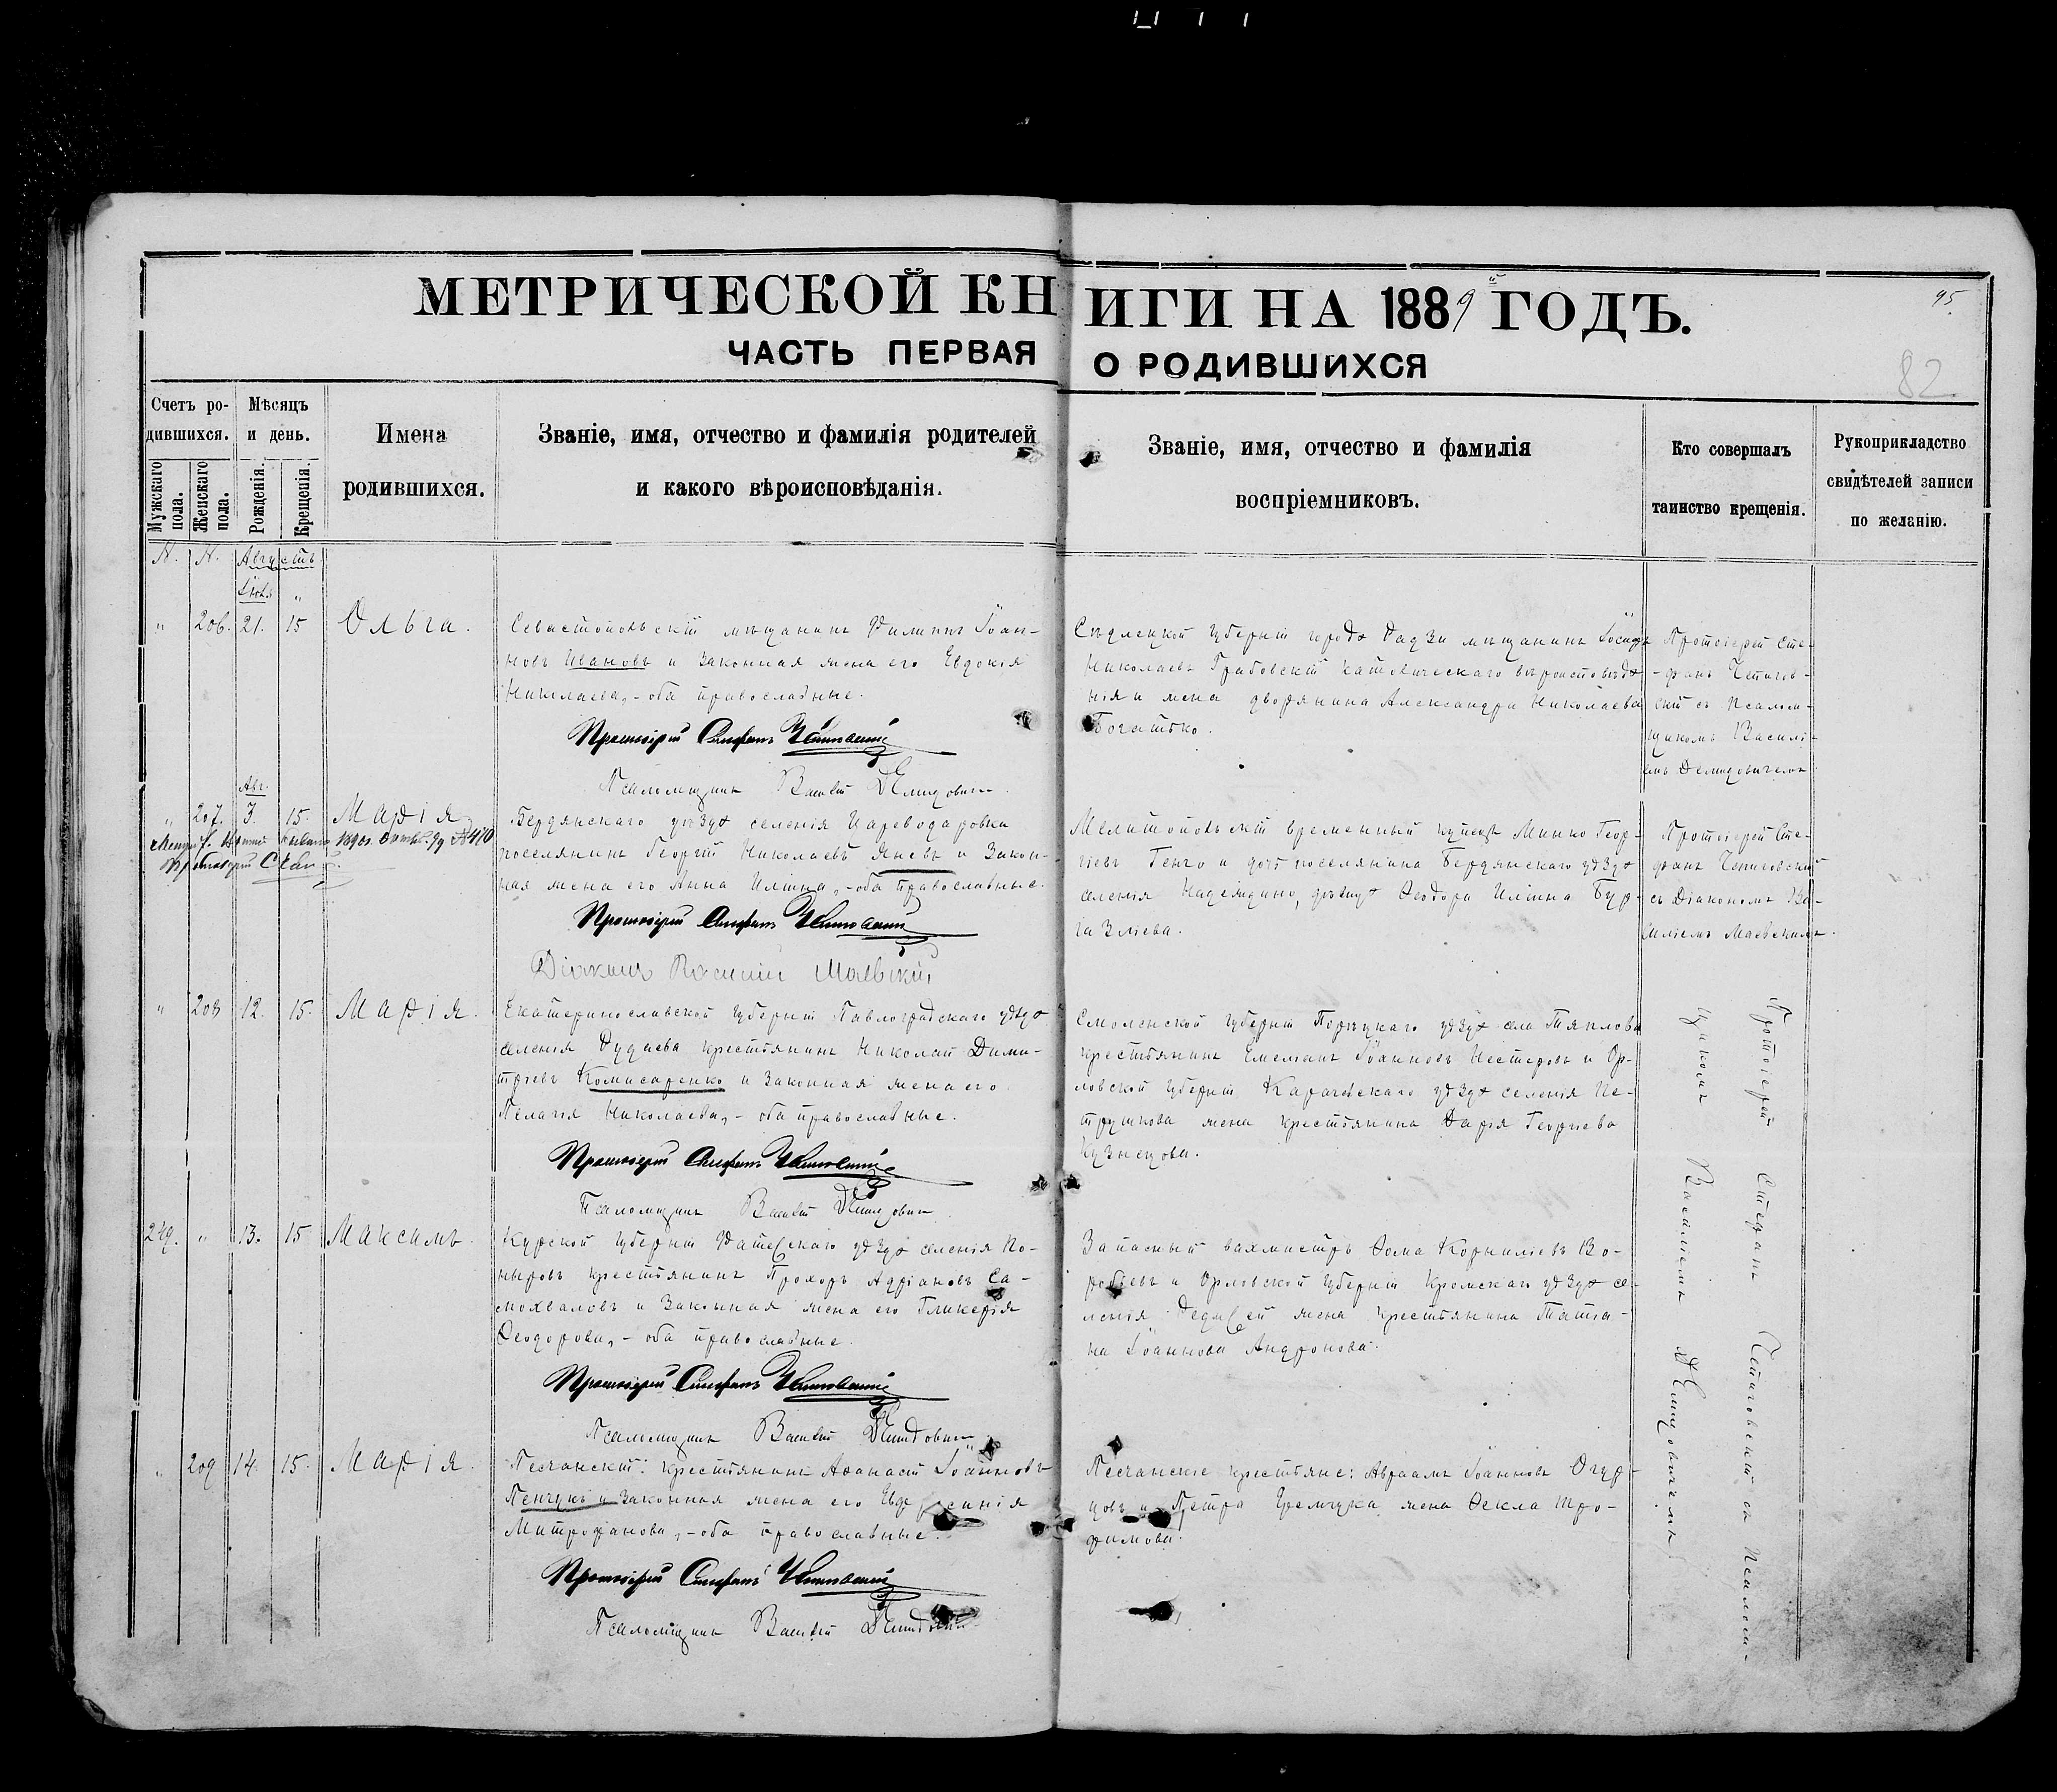 МЕТРИЧЕСКОЙ КНИГИ НА 1889й ГОДЪ.
95.
ЧАСТЬ ПЕРВАЯ О РОДИВШИХСЯ
82
Счетъ ро-
дившихся.
Мужскаго пола.
Женскаго пола.
Мѣсяцъ
и день.
Рожденія.
Крещенія.
Имена
родившихся.
Званіе, имя, отчество и фамилія родителей
и какого вѣроисповѣданія.
Званіе, имя, отчество и фамилія
воспріемниковъ.
Кто совершалъ
таинство крещенія.
Рукоприкладство
свидѣтелей записи
по желанію.
N. N. Августъ.
Іюль "
" 206. 21. 15 Ольга.
Севастопольскій мѣщанинъ Филиппъ Іоан-
новъ Ивановъ и законная жена его Евдокія
Николаева, - оба православные.
Протоіерей Стефанъ
Псаломщикъ Василій Демидовичъ
Сѣдлецкой губерніи города мѣщанинъ Іосифъ
Николаевъ Грабовскій католическаго вѣроисповѣда
нія и жена дворянина Александра Николаева
Богатько.
Протоіерей Сте-
-фанъ
скій съ псалом-
щикомъ Василі-
емъ Демидовичемъ
Авг.
" 207. 3. 15. Марія
Бердянскаго уѣзда селенія Цареводаровка
поселянинъ Георгій Николаевъ Яневъ и закон-
ная жена его Анна Ильина, - оба православные.
Протоіерей Стефанъ
Діаконъ Василій Маевскій
Мелитопольскій временный купецъ Минко Геор-
гіевъ Генчо и дочь поселянина Бердянскаго уѣзда
селенія Надеждино, дѣвица Ѳеодора Ильина Бур-
газліева.
Протоіерей Сте-
фанъ
съ Діакономъ Ва-
силіемъ Маевскимъ.
" 208 12. 15. Марія.
Екатеринославской губерніи Павлоградскаго уѣзда
селенія крестьянинъ Николай Дими-
тріевъ Комисаренко и законная жена его
Пелагія Николаева, - оба православные.
Протоіерей Стефанъ
Псаломщикъ Василій Демидовичъ
Смоленской губерніи Порѣчскаго уѣзда села Тяплова
крестьянинъ Емеліанъ Нестеровъ и Ор-
ловской губерніи Карачевскаго уѣзда селенія Пе-
трушкова жена крестьянина Дарія Георгіева
Кузнецова.
249. " 13. 15 Максимъ.
Курской губерніи Фатежскаго уѣзда селенія По-
ныровъ крестьянинъ Прохоръ Адріановъ Са-
мохваловъ и законная жена его Гликерія
Ѳеодорова, - оба православные.
Протоіерей Стефанъ
Псаломщикъ Василій Демидовичъ
Запасный вахмистръ Ѳома Корниліевъ Во-
робьевъ и Орловской губерніи Кромскаго уѣзда се-
ленія жена крестьянина Татіа-
на Іоаннова Андронова.
" 209 14. 15. Марія.
Песчанскій: крестьянинъ Аѳанасій Іоанновъ
Пенчукъ и законная жена его Евфросинія
Митрофанова, - оба православные.
Протоіерей Стефанъ
Псаломщикъ Василій
Песчанскіе крестьяне: Авраамъ Іоанновъ Огур-
цовъ и Петра жена Ѳекла Тро-
фимова.
Протоіерей Стефанъ съ псалом-
щикомъ Василіемъ Демидовичемъ